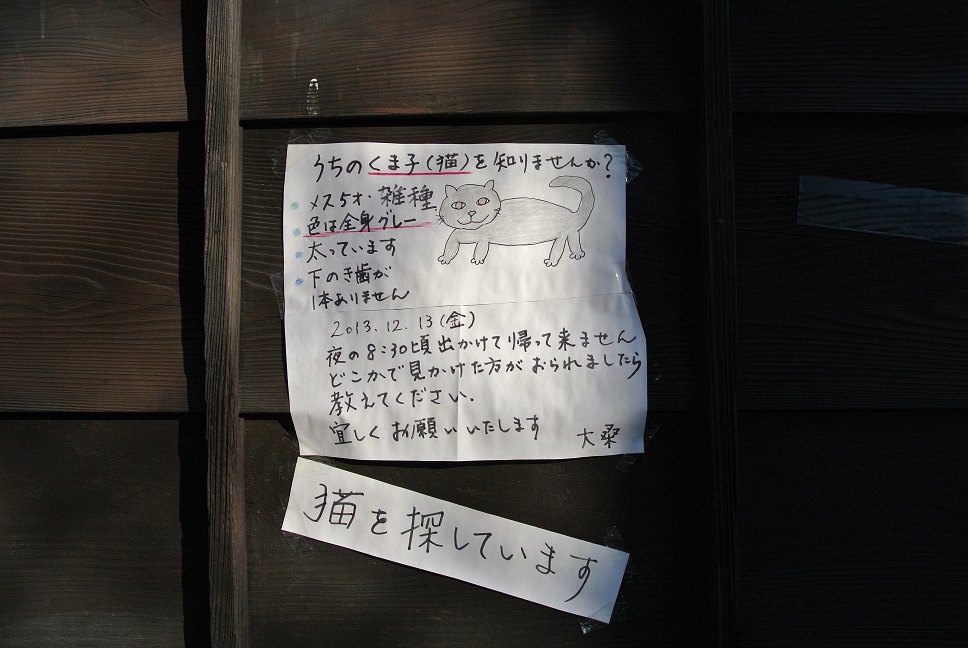 うちのくま子(猫)を知りませんか?
メス5才・雑種
色は全身グレー
太っています
下のき歯が
1本ありません
2013.12.13(金)
夜の8:30頃出かけて帰って来ません
どこかで見かけた方がおられましたら
教えてください.
宜しくお願いいたします 大桑
猫を探しています